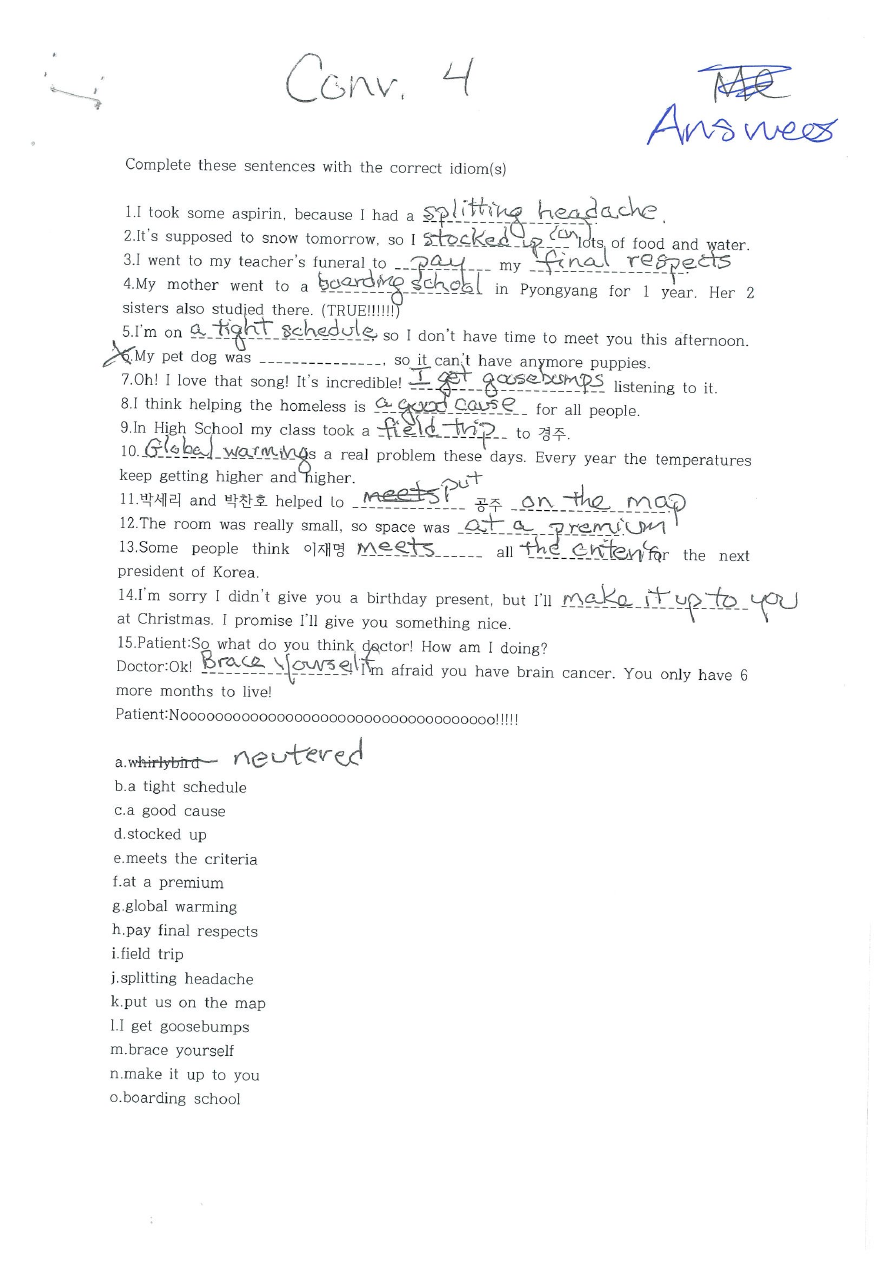 Conv. 4
Answers
Complete these sentences with the correct idiom(s)
1.I took some aspirin, because I had a splitting headache.
2.It's supposed to snow tomorrow, so I stocked up (on) lots of food and water.
3.I went to my teacher's funeral to pay my final respects
4.My mother went to a boarding school in Pyongyang for 1 year. Her 2
sisters also studied there. (TRUE!!!!!!)
5.I'm on a tight schedule, so I don't have time to meet you this afternoon.
6.My pet dog was _______________, so it can't have anymore puppies.
7.Oh! I love that song! It's incredible! I get goosebumps listening to it.
8.I think helping the homeless is a good cause for all people.
9.In High School my class took a field trip to 경주.
10.Global warming is a real problem these days. Every year the temperatures
keep getting higher and higher.
11.박세리 and 박찬호 helped to meets put 공주 on the map
12.The room was really small, so space was at a premium
13.Some people think 이재명 meets all the criteria for the next
president of Korea.
14.I'm sorry I didn't give you a birthday present, but I'll make it up to you
at Christmas. I promise I'll give you something nice.
15.Patient:So what do you think doctor! How am I doing?
Doctor:Ok! Brace yourself! I'm afraid you have brain cancer. You only have 6
more months to live!
Patient:Nooooooooooooooooooooooooooooooooooooo!!!!!
a.whirlybird neutered
b.a tight schedule
c.a good cause
d.stocked up
e.meets the criteria
f.at a premium
g.global warming
h.pay final respects
i.field trip
j.splitting headache
k.put us on the map
l.I get goosebumps
m.brace yourself
n.make it up to you
o.boarding school